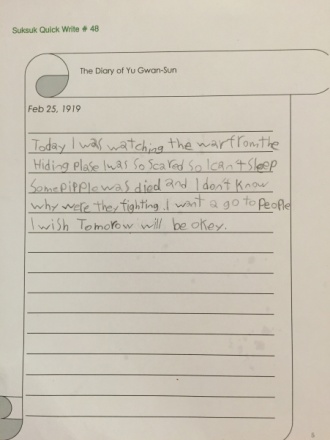 Suksuk Quick Write # 48
The Diary of Yu Gwan-Sun
Feb 25, 1919
Today I was watching the war from the
Hiding plase I was so scared so I can't sleep
Some pipple was died and I don't know
why were they fighting. I want a go to people
I wish Tomorow will be okey.